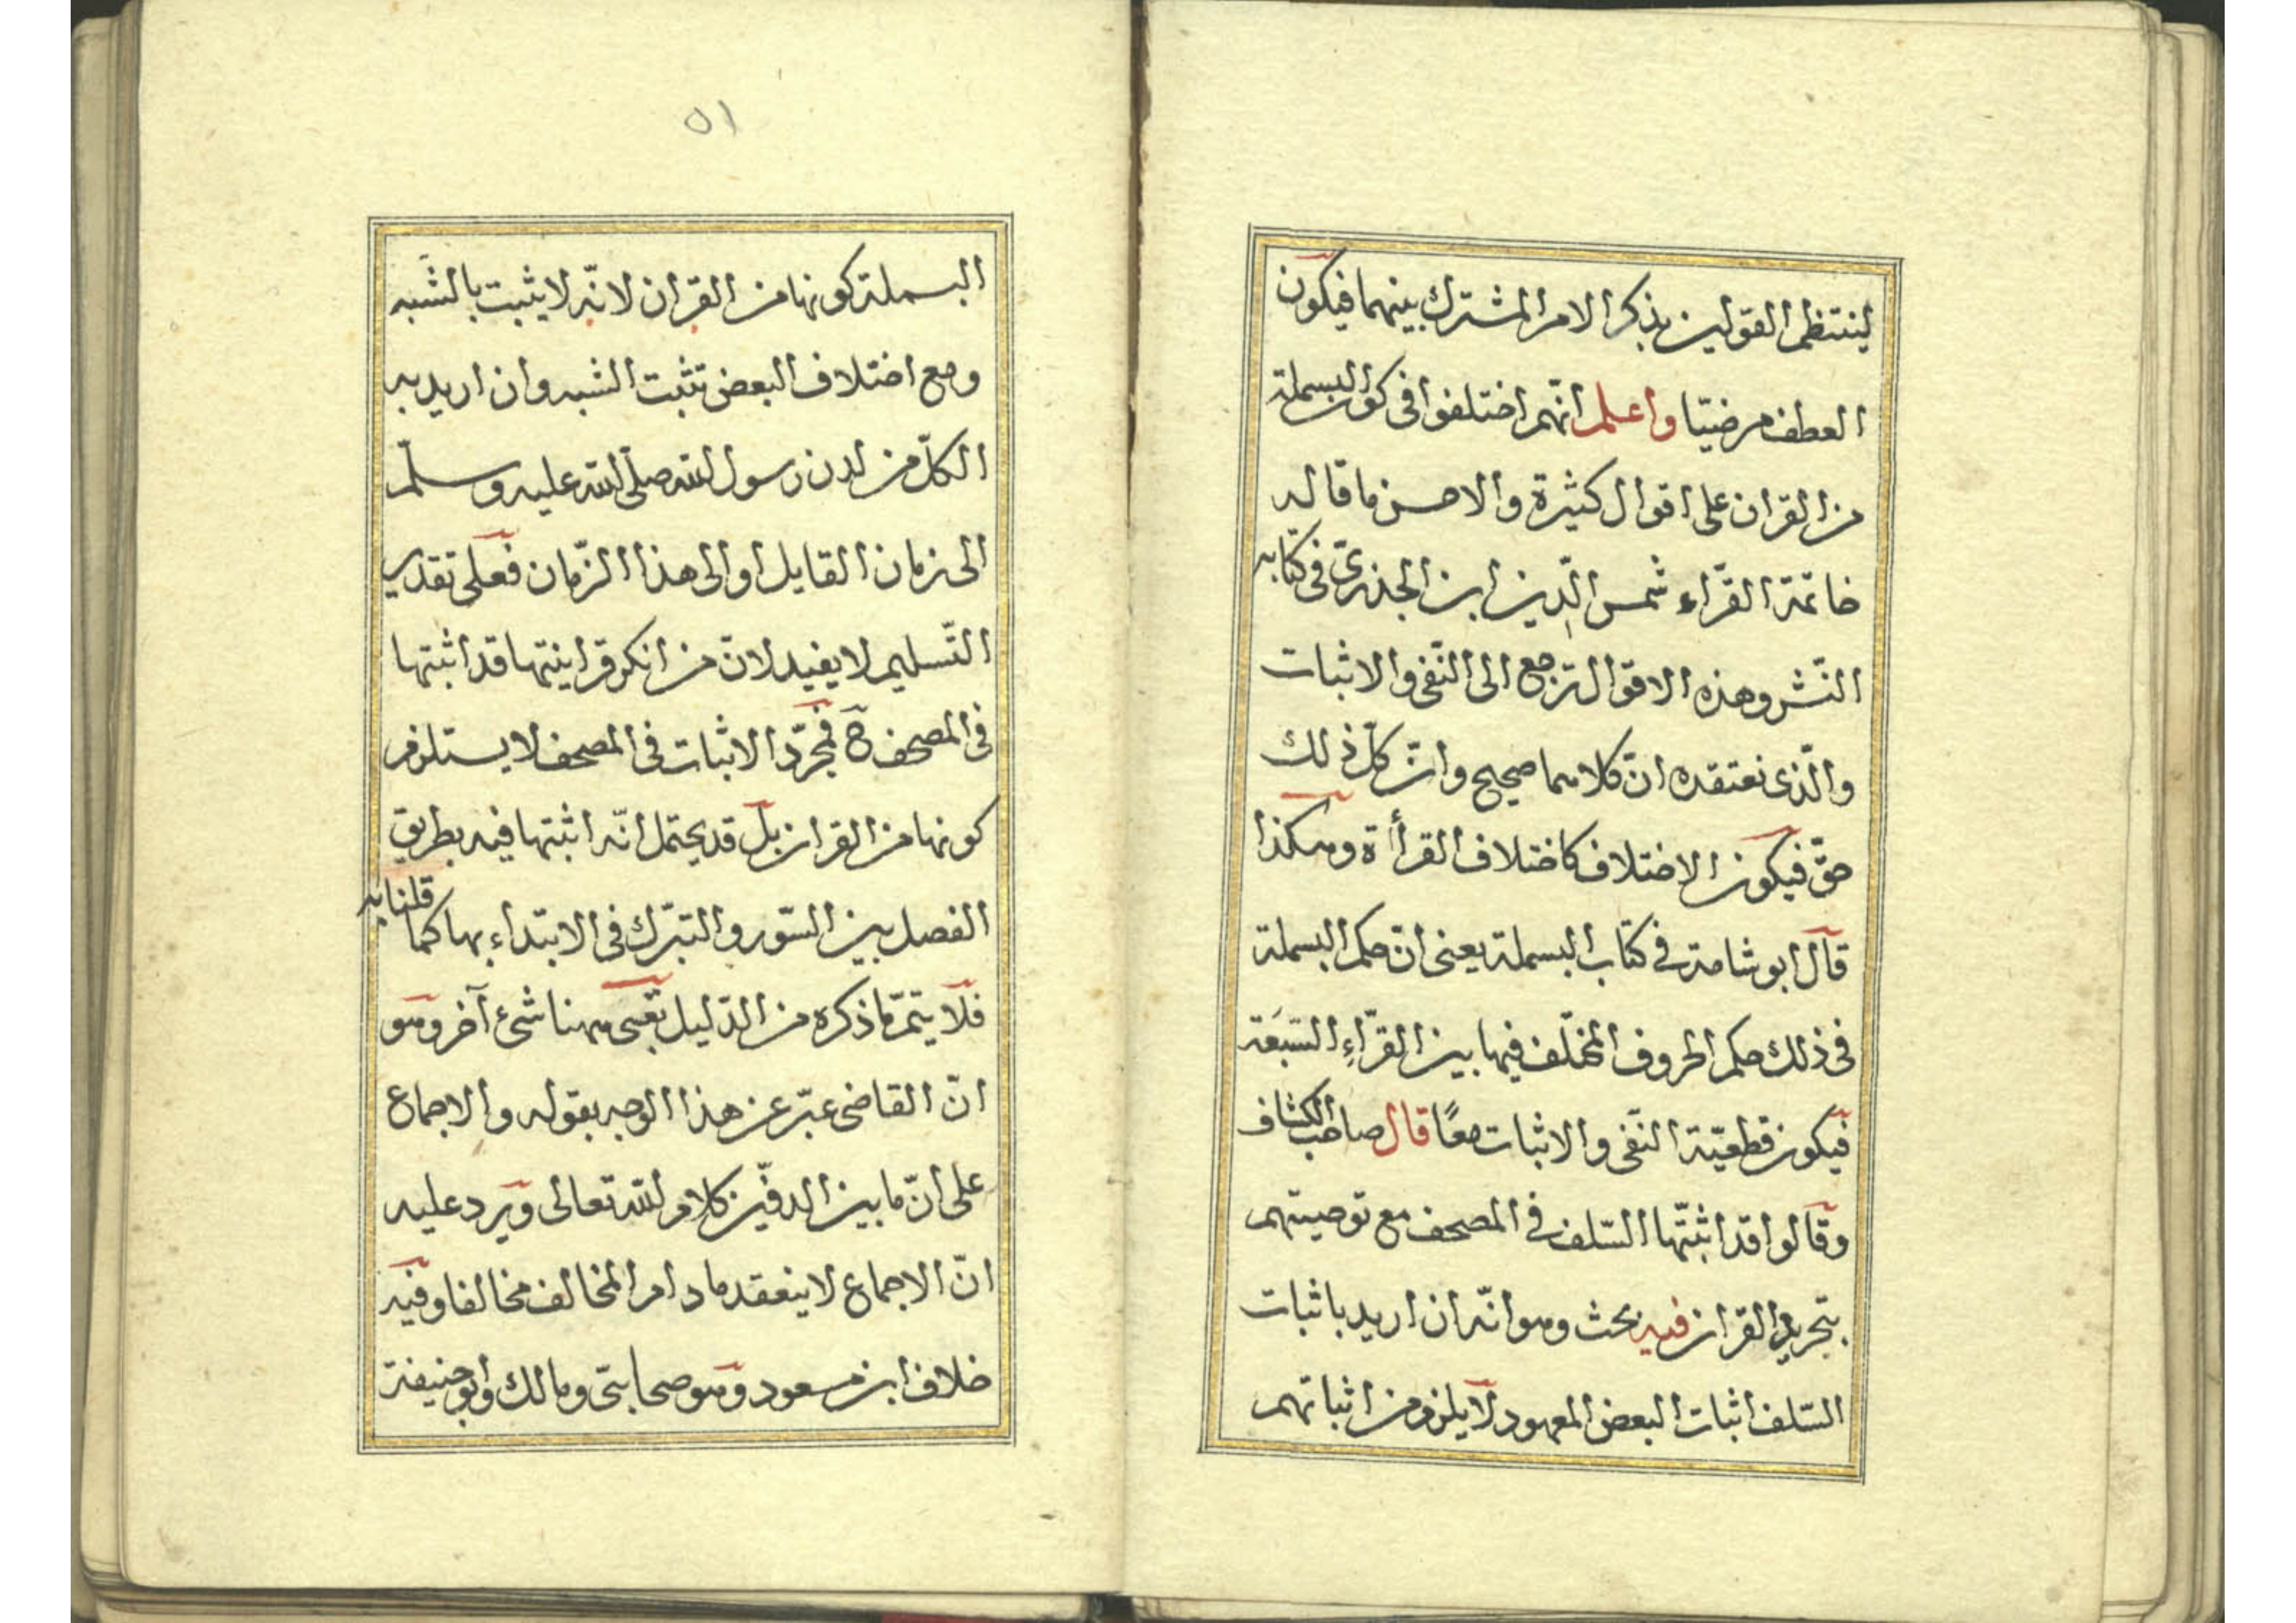 لينتظم القولين بذكر الامر المشترك بينهما فيكون
العطف مرضيّا واعلم انّهم اختلفوا فى كون البسملة
من القران على اقوال كثيرة والاحسن ما قاله
خاتمة القرّاء شمس الدّين ابن الجزرىّ فى كتابه
النّشر وهذه الاقوال ترجع الى النّفى والاثبات
والّذى نعتقده انّ كلاهما صحيح وانّ كلّ ذلك
حقّ فيكون الاختلاف كاختلاف القرأة وهكذا
قال ابو شامة فى كتاب البسملة يعنى انّ حكم البسملة
فى ذلك حكم الحروف المختلف فيها بين القرّاءِ السّبعَة
فيكون قطعيّة النّفى والاثبات معًا قال صاحب الكشاف
وقالوا قد اثبتّها السّلف فى المصحف مع توصيتهم
بتجريد القران فيه بحث وهو انّه ان اريد باثبات
السّلف اثبات البعض المعهود لا يلزم من اثباتهم
٥١
البسملة كونها من القران لانّه لا يثبت بالشَّبه
ومع اختلاف البعض تثبت الشبه وان اريد به
الكلّ من لدن رسول الله صلّى الله عليه وسلّم
الى زمان القايل او الى هذا الزّمان فعلى تقدير
التّسليم لا يفيد لانّ من انكر قراينتها قد اثبتها
فى المصحف ح فمجرّد الاثبات فى المصحف لا يستلزم
كونها من القران بل قد يحتمل انّه اثبتها فيه بطريق
الفصل بين السّور والتبرّك فى الابتداء بها كما قلنا به
فلا يتمّ ما ذكره من الدّليل بقى ههنا شئ آخر وهو
انّ القاضى عبّر عن هذا الوجه بقوله والاجماع
على انّ ما بين الدفّين كلام الله تعالى ويرد عليه
انّ الاجماع لا ينعقد ما دام المخالف مخالفا وفيه
خلاف ابن مسعود وهو صحابىّ ومالك وابو حنيفة